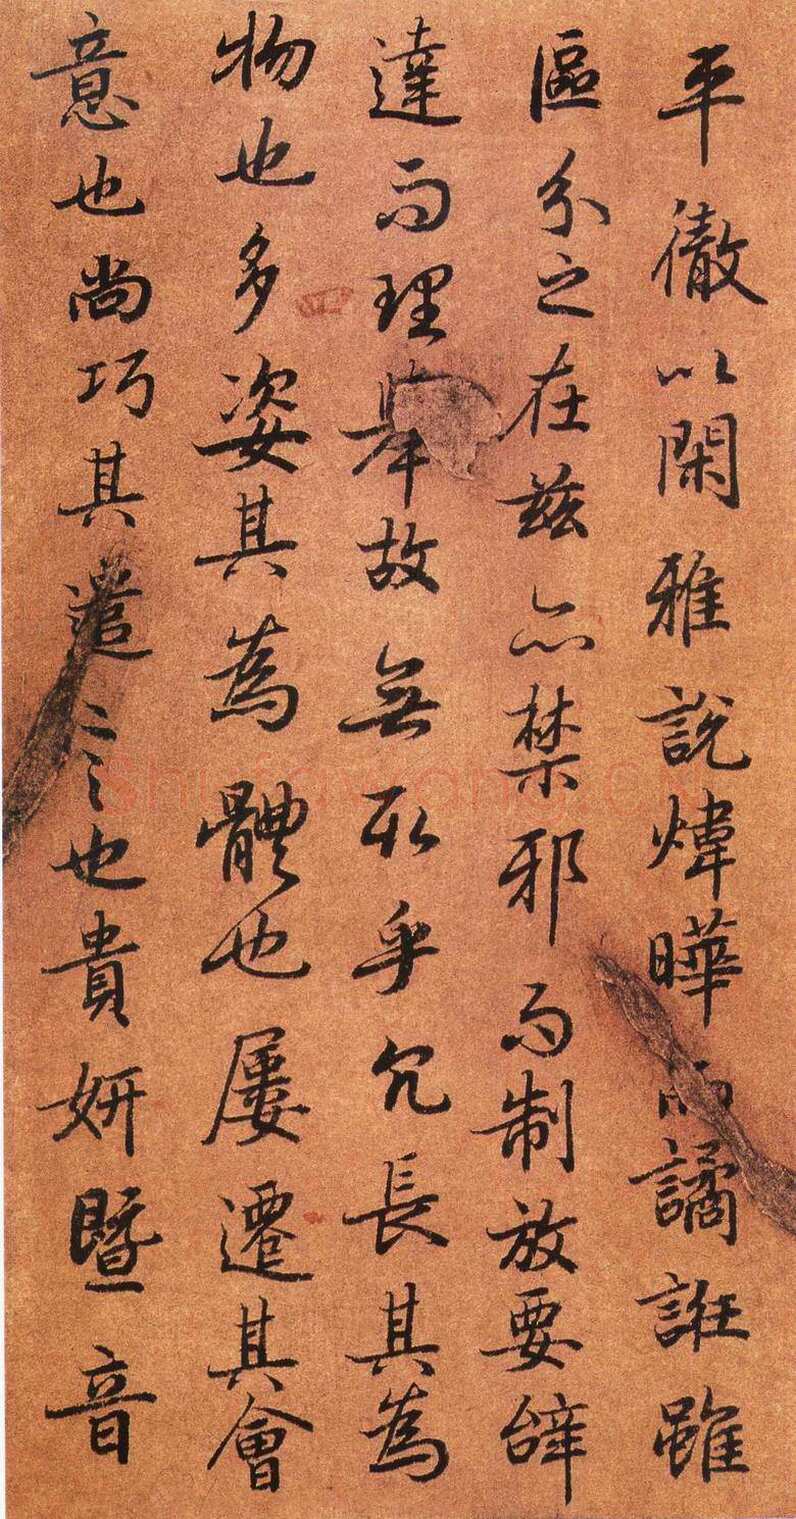 平徹以閑雅說煒曄而譎誑雖
區分之在茲亦禁邪而制放要辭
達而理舉故無取乎冗長其為
物也多姿其為體也屢遷其會
意也尚巧其遣言也貴妍暨音
shufawang.cn